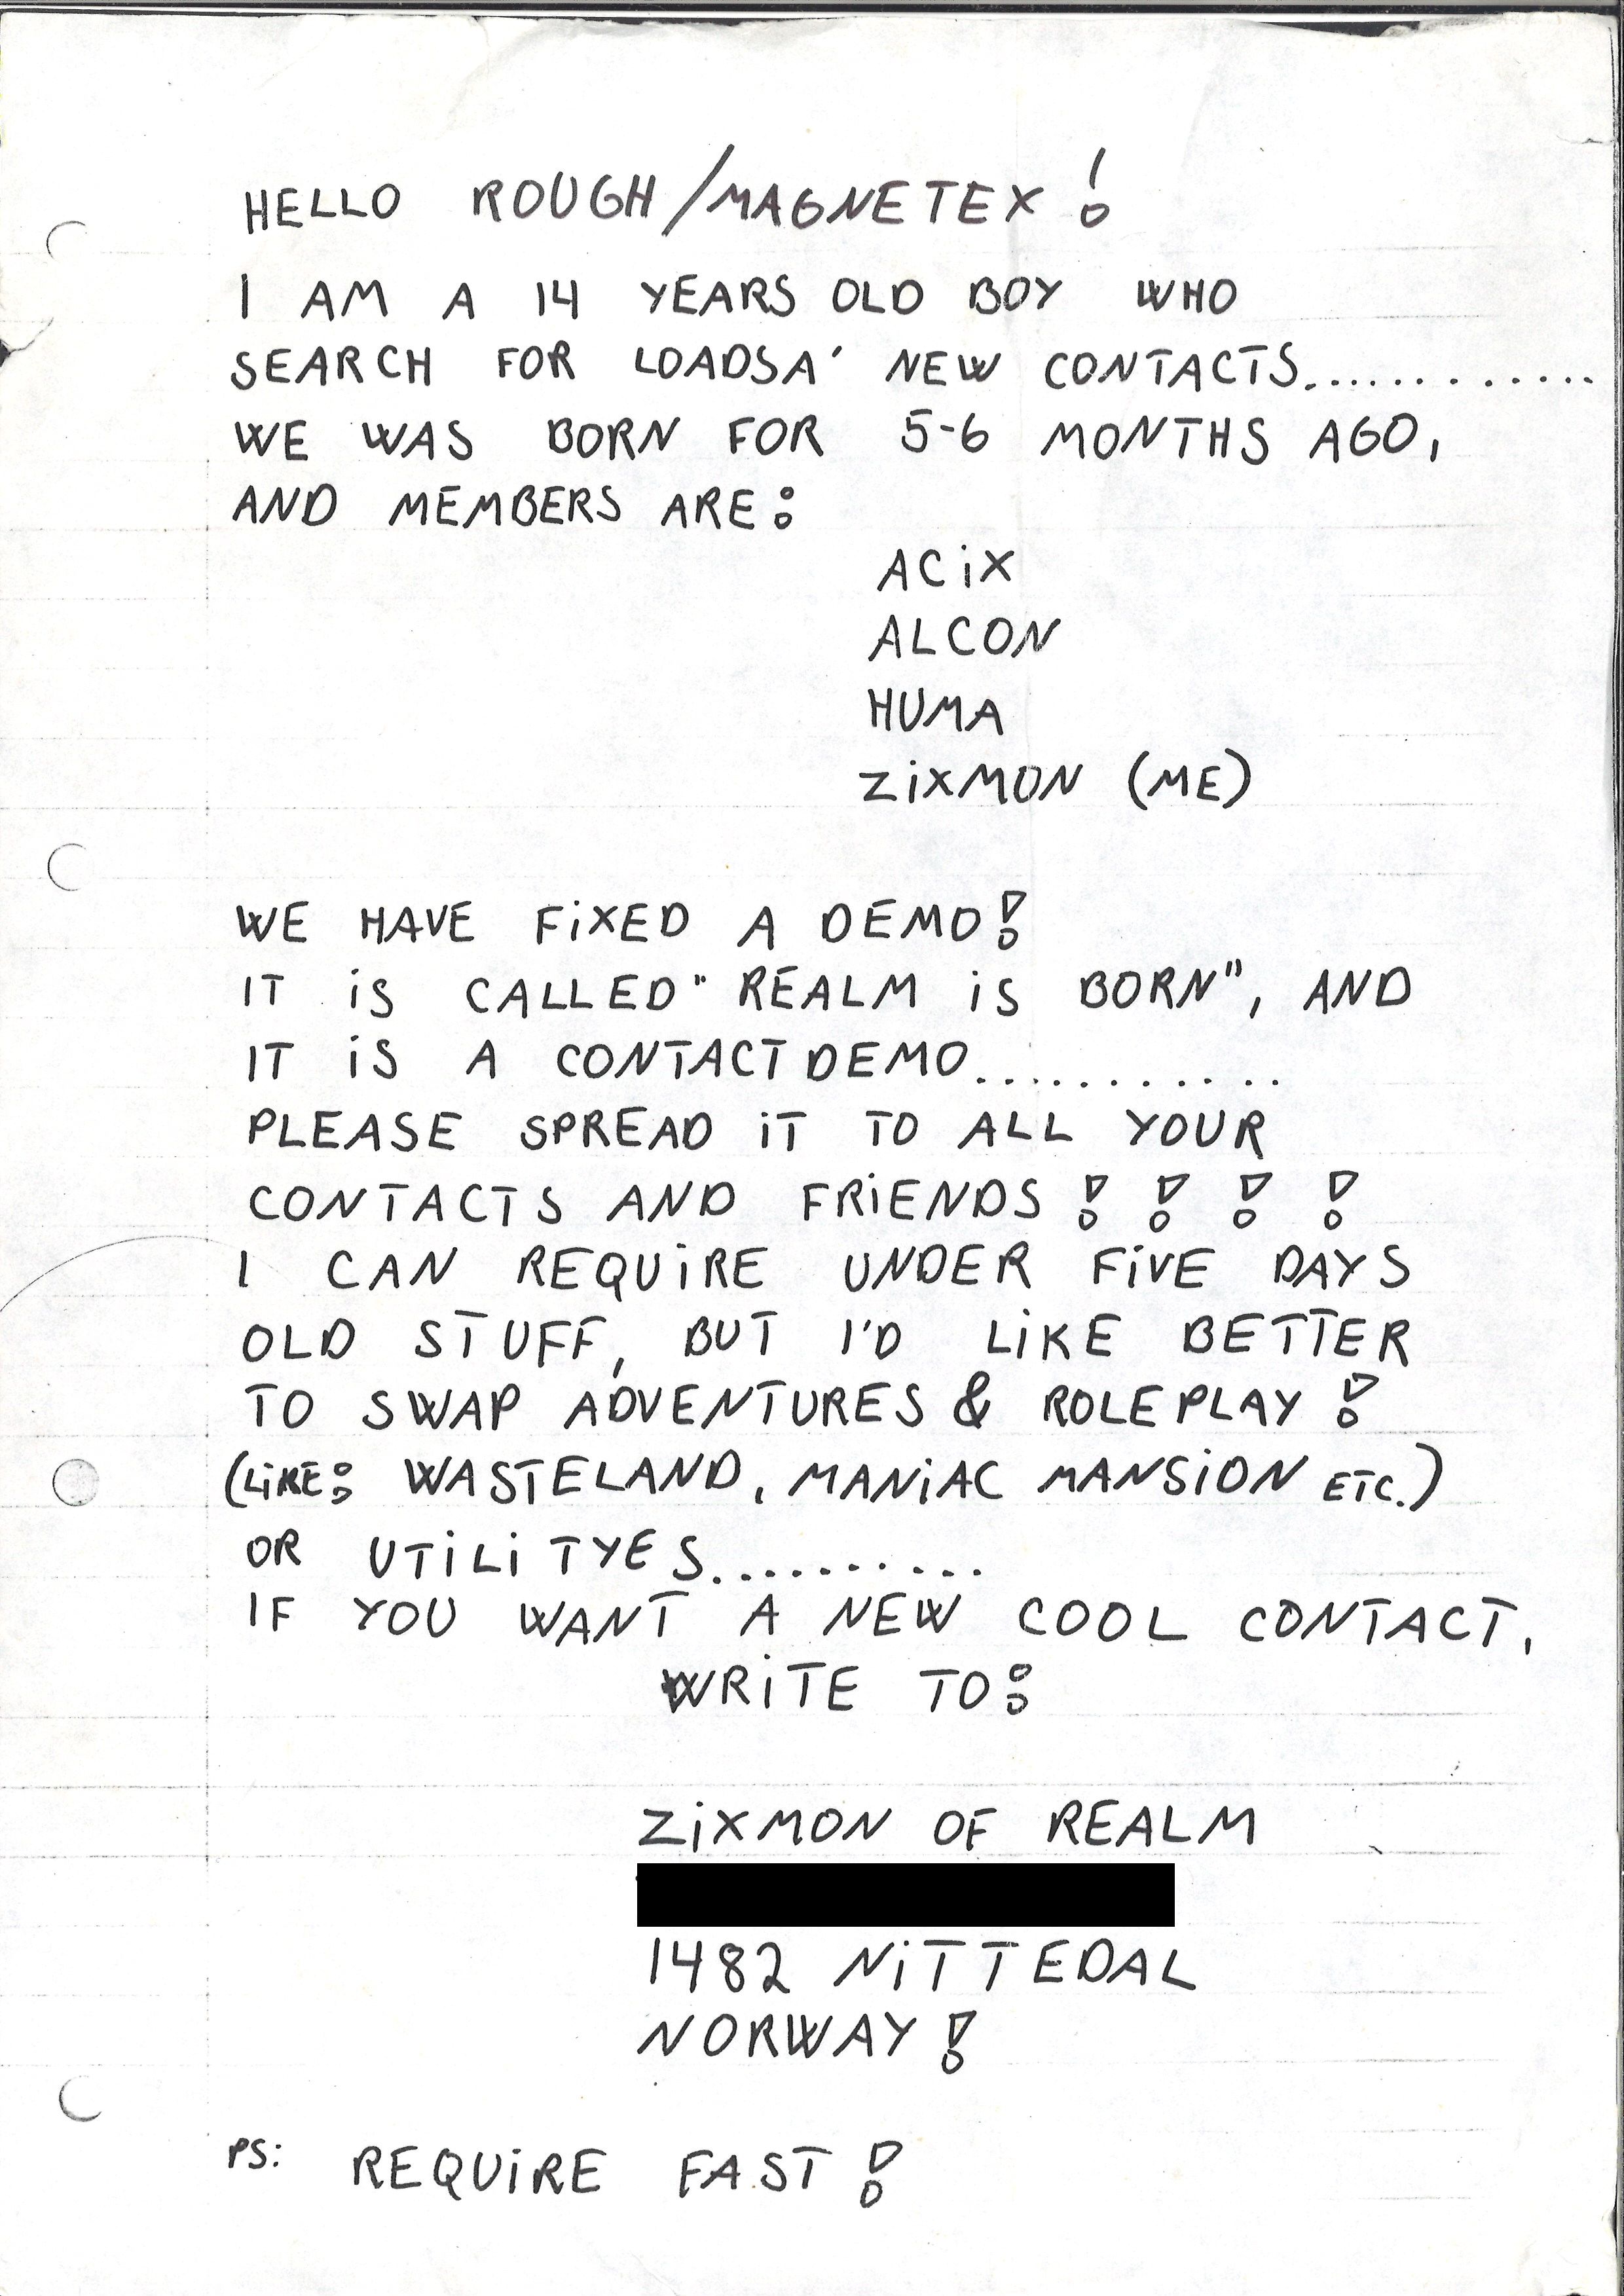 HELLO ROUGH/MAGNETEX!
I AM A 14 YEARS OLD BOY WHO
SEARCH FOR LOADSA' NEW CONTACTS.............
WE WAS BORN FOR 5-6 MONTHS AGO,
AND MEMBERS ARE:
ACiX
ALCON
HUMA
ZiXMON (ME)
WE HAVE FiXED A DEMO!
IT iS CALLED "REALM iS BORN", AND
IT iS A CONTACTDEMO...........
PLEASE SPREAD iT TO ALL YOUR
CONTACTS AND FRiENDS! ! ! !
I CAN REQUiRE UNDER FiVE DAYS
OLD STUFF, BUT I'D LiKE BETTER
TO SWAP ADVENTURES & ROLEPLAY!
(LiKE: WASTELAND, MANiAC MANSiON ETC.)
OR UTiLiTYES..........
IF YOU WANT A NEW COOL CONTACT,
WRiTE TO:
ZiXMON OF REALM
1482 NiTTEDAL
NORWAY!
PS: REQUiRE FAST!